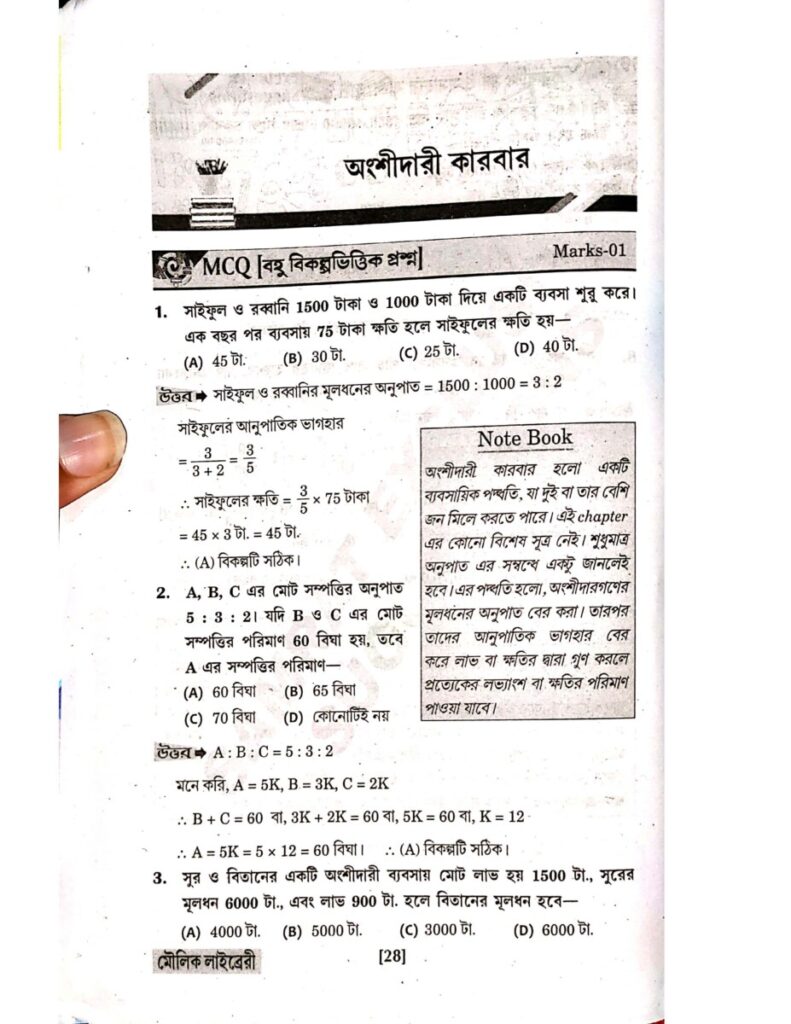 অংশীদারী কারবার
MCQ [বহু বিকল্পভিত্তিক প্রশ্ন]
Marks-01
1. সাইফুল ও রব্বানি 1500 টাকা ও 1000 টাকা দিয়ে একটি ব্যবসা শুরু করে।
এক বছর পর ব্যবসায় 75 টাকা ক্ষতি হলে সাইফুলের ক্ষতি হয়—
(A) 45 টা. (B) 30 টা. (C) 25 টা. (D) 40 টা.
উত্তর ➡ সাইফুল ও রব্বানির মূলধনের অনুপাত = 1500 : 1000 = 3 : 2
সাইফুলের আনুপাতিক ভাগহার
= 3/(3 + 2) = 3/5
∴ সাইফুলের ক্ষতি = 3/5 × 75 টাকা
= 45 × 3 টা. = 45 টা.
∴ (A) বিকল্পটি সঠিক।
2. A, B, C এর মোট সম্পত্তির অনুপাত
5 : 3 : 2। যদি B ও C এর মোট
সম্পত্তির পরিমাণ 60 বিঘা হয়, তবে
A এর সম্পত্তির পরিমাণ—
(A) 60 বিঘা (B) 65 বিঘা
(C) 70 বিঘা (D) কোনোটিই নয়
Note Book
অংশীদারী কারবার হলো একটি
ব্যবসায়িক পদ্ধতি, যা দুই বা তার বেশি
জন মিলে করতে পারে। এই chapter
এর কোনো বিশেষ সূত্র নেই। শুধুমাত্র
অনুপাত এর সম্বন্ধে একটু জানলেই
হবে। এর পদ্ধতি হলো, অংশীদারগণের
মূলধনের অনুপাত বের করা। তারপর
তাদের আনুপাতিক ভাগহার বের
করে লাভ বা ক্ষতির দ্বারা গুণ করলে
প্রত্যেকের লভ্যাংশ বা ক্ষতির পরিমাণ
পাওয়া যাবে।
উত্তর ➡ A : B : C = 5 : 3 : 2
মনে করি, A = 5K, B = 3K, C = 2K
∴ B + C = 60 বা, 3K + 2K = 60 বা, 5K = 60 বা, K = 12
∴ A = 5K = 5 × 12 = 60 বিঘা। ∴ (A) বিকল্পটি সঠিক।
3. সুর ও বিতানের একটি অংশীদারী ব্যবসায় মোট লাভ হয় 1500 টা., সুরের
মূলধন 6000 টা., এবং লাভ 900 টা. হলে বিতানের মূলধন হবে—
(A) 4000 টা. (B) 5000 টা. (C) 3000 টা. (D) 6000 টা.
মৌলিক লাইব্রেরী
[28]